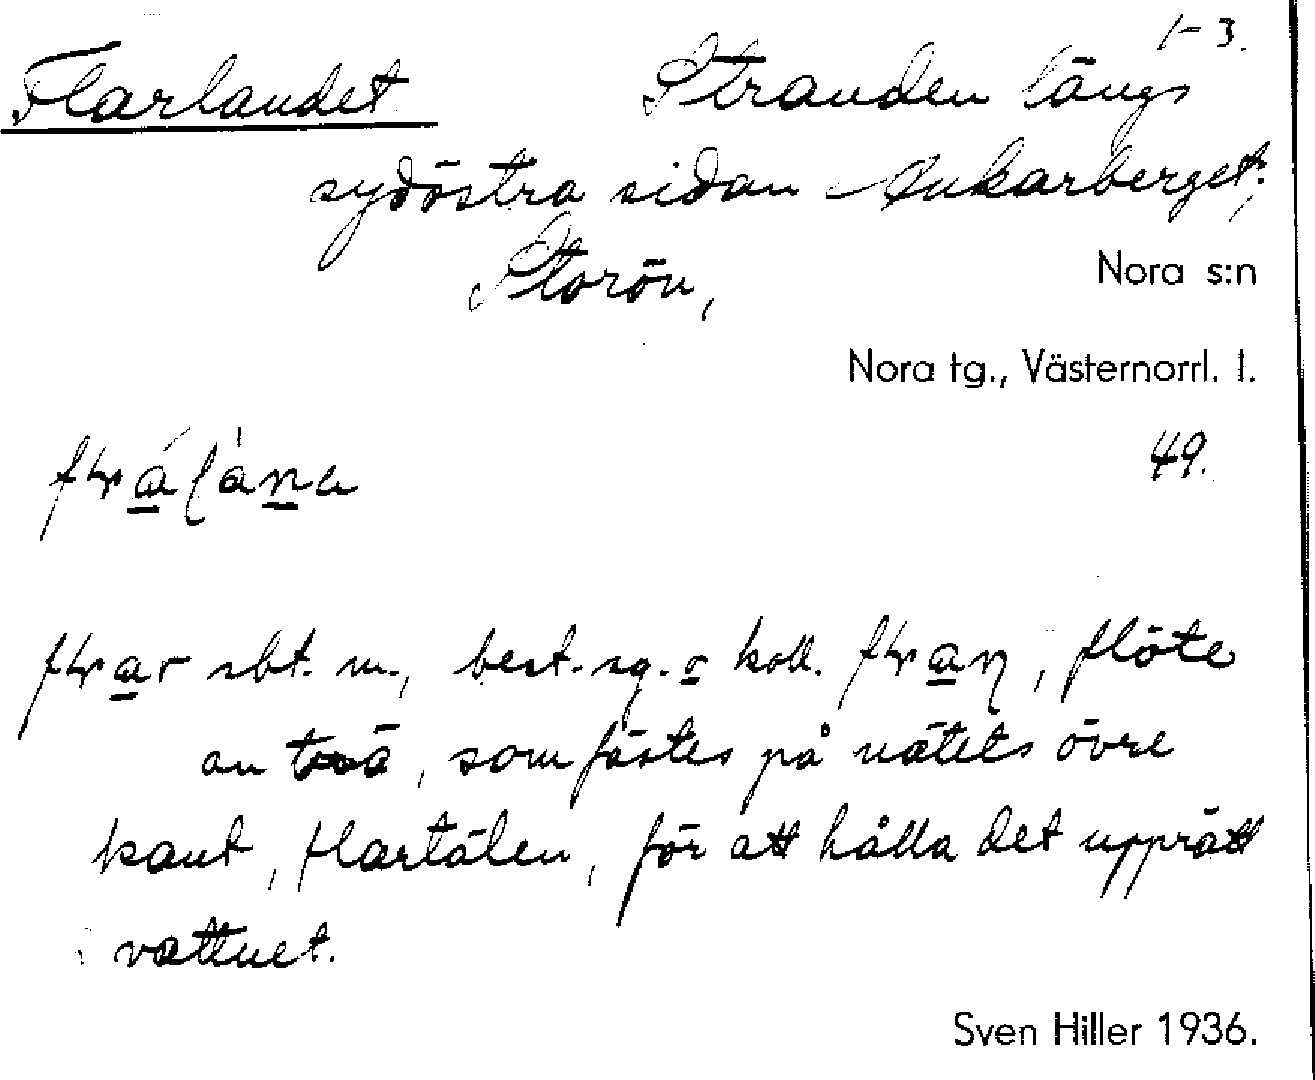 1-3.
Flarlandet Stranden längs
sydöstra sidan Ankarberget,
Storön,
Nora s:n
Nora tg., Västernorrl. l.
49.
sbt. m., best. sg. o koll. , flöte
av trä, som fästes på nätets övre
kant, flartälen, för att hålla det upprätt
i vattnet.
Sven Hiller 1936.